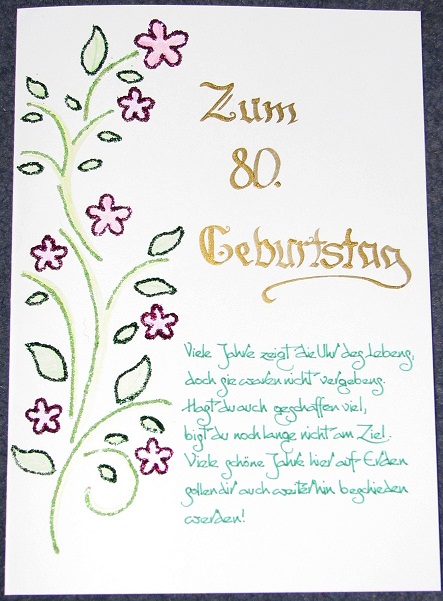 Zum
80.
Geburtstag
Viele Jahre zeigt die Uhr des Lebens,
doch sie waren nicht vergebens.
Hast du auch geschaffen viel,
bist du noch lange nicht am Ziel.
Viele schöne Jahre hier auf Erden
sollen dir auch weiterhin beschieden
werden!